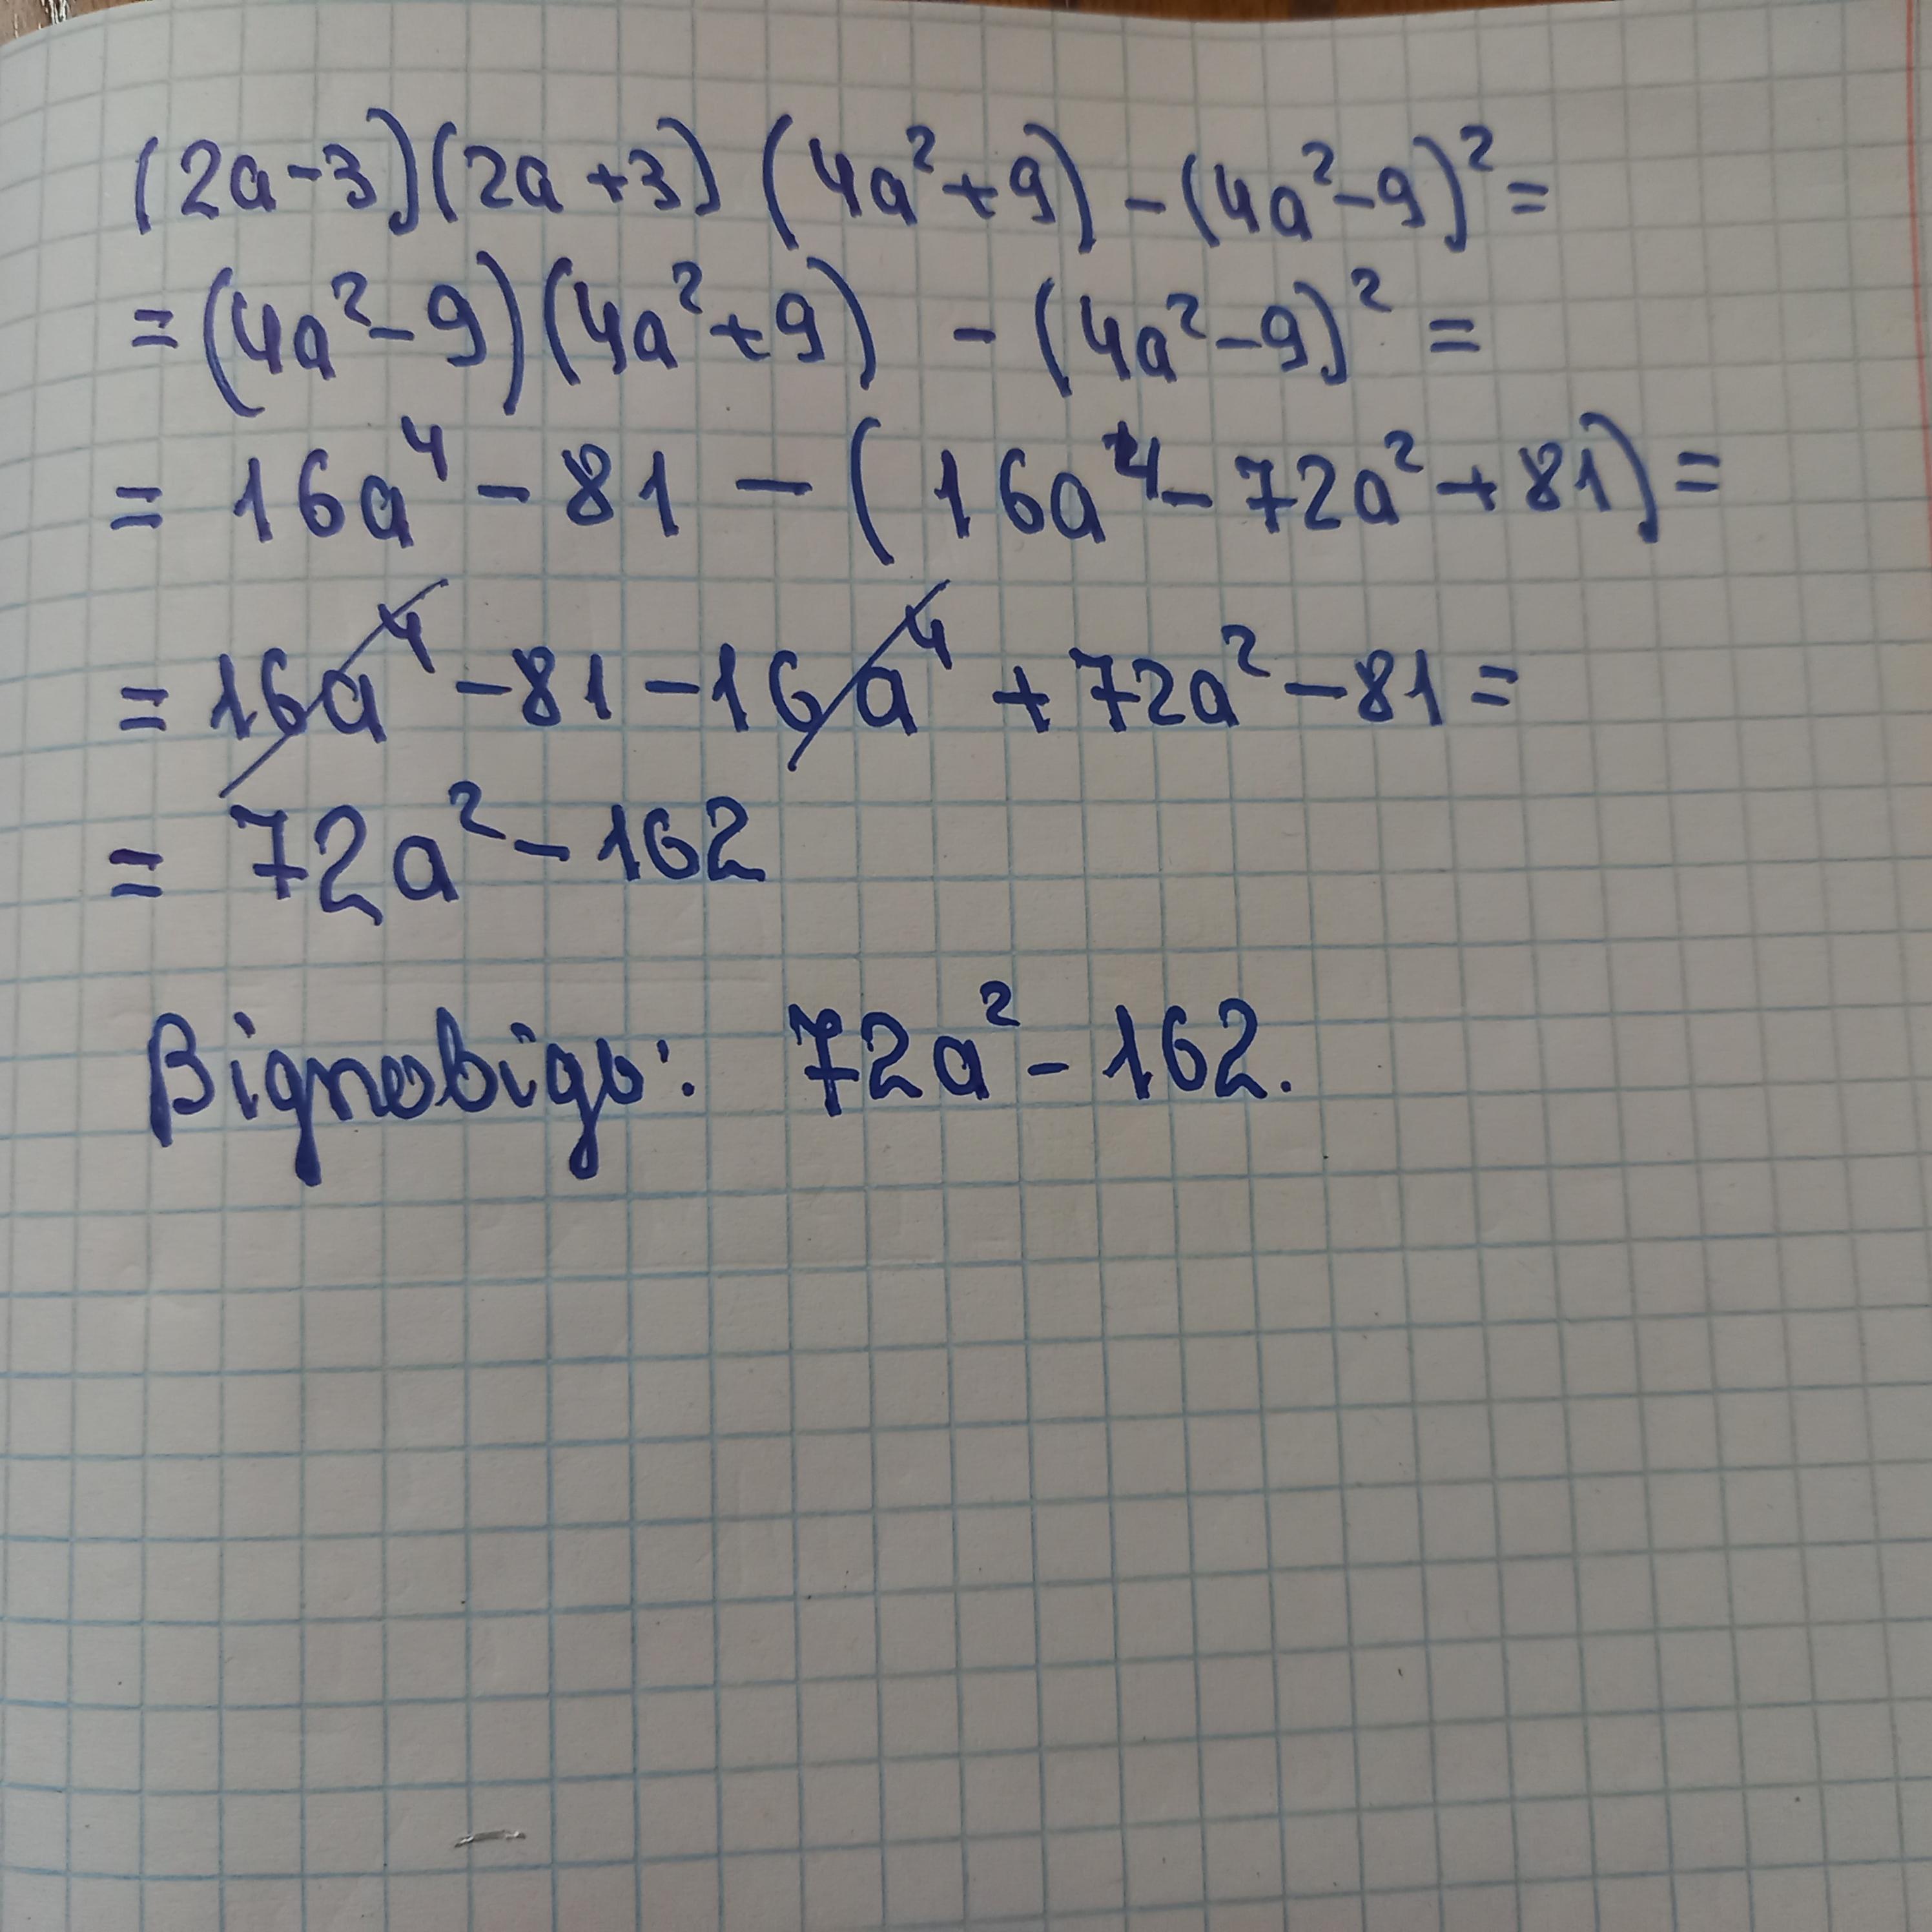 (2a-3)(2a+3)(4a²+9)-(4a²-9)²=
=(4a²-9)(4a²+9) - (4a²-9)² =
= 16a⁴ - 81 - (16a⁴ - 72a² + 81) =
= 16a⁴ - 81 - 16a⁴ + 72a² - 81 =
= 72a² - 162
Відповідь: 72a² - 162.